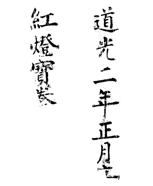 道光二年正月七
紅燈寶卷